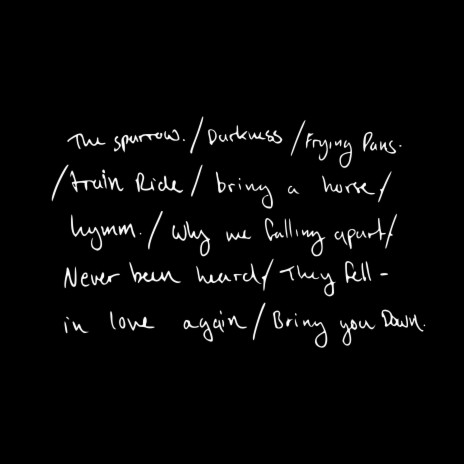 The sparrow. / Darkness / Frying Pans.
/ train Ride / bring a horse /
hymm. / Why me falling apart /
Never been heard / They fell -
in love again / Bring you Down.